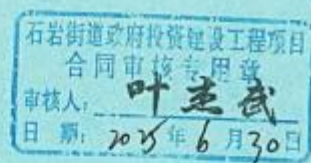 石岩街道政府投资建设工程项目
合同审核专用章
审核人：叶志武
日期：2025年6月30日